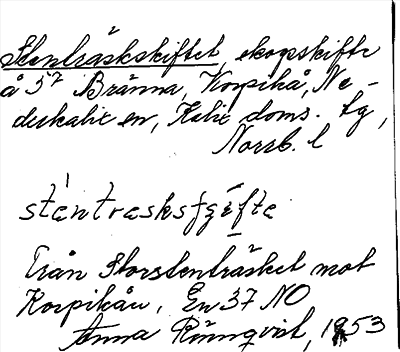 Stenträskskiftet, skogsskifte
å 5⁷ Bränna, Korpikå, Ne-
derkalix sn, Kalix doms. lg,
Norrb. l
stentrasksfgifte
Från Storstenträsket mot
Korpikån, En 37 NO
Anna Rönnqvist, 1953